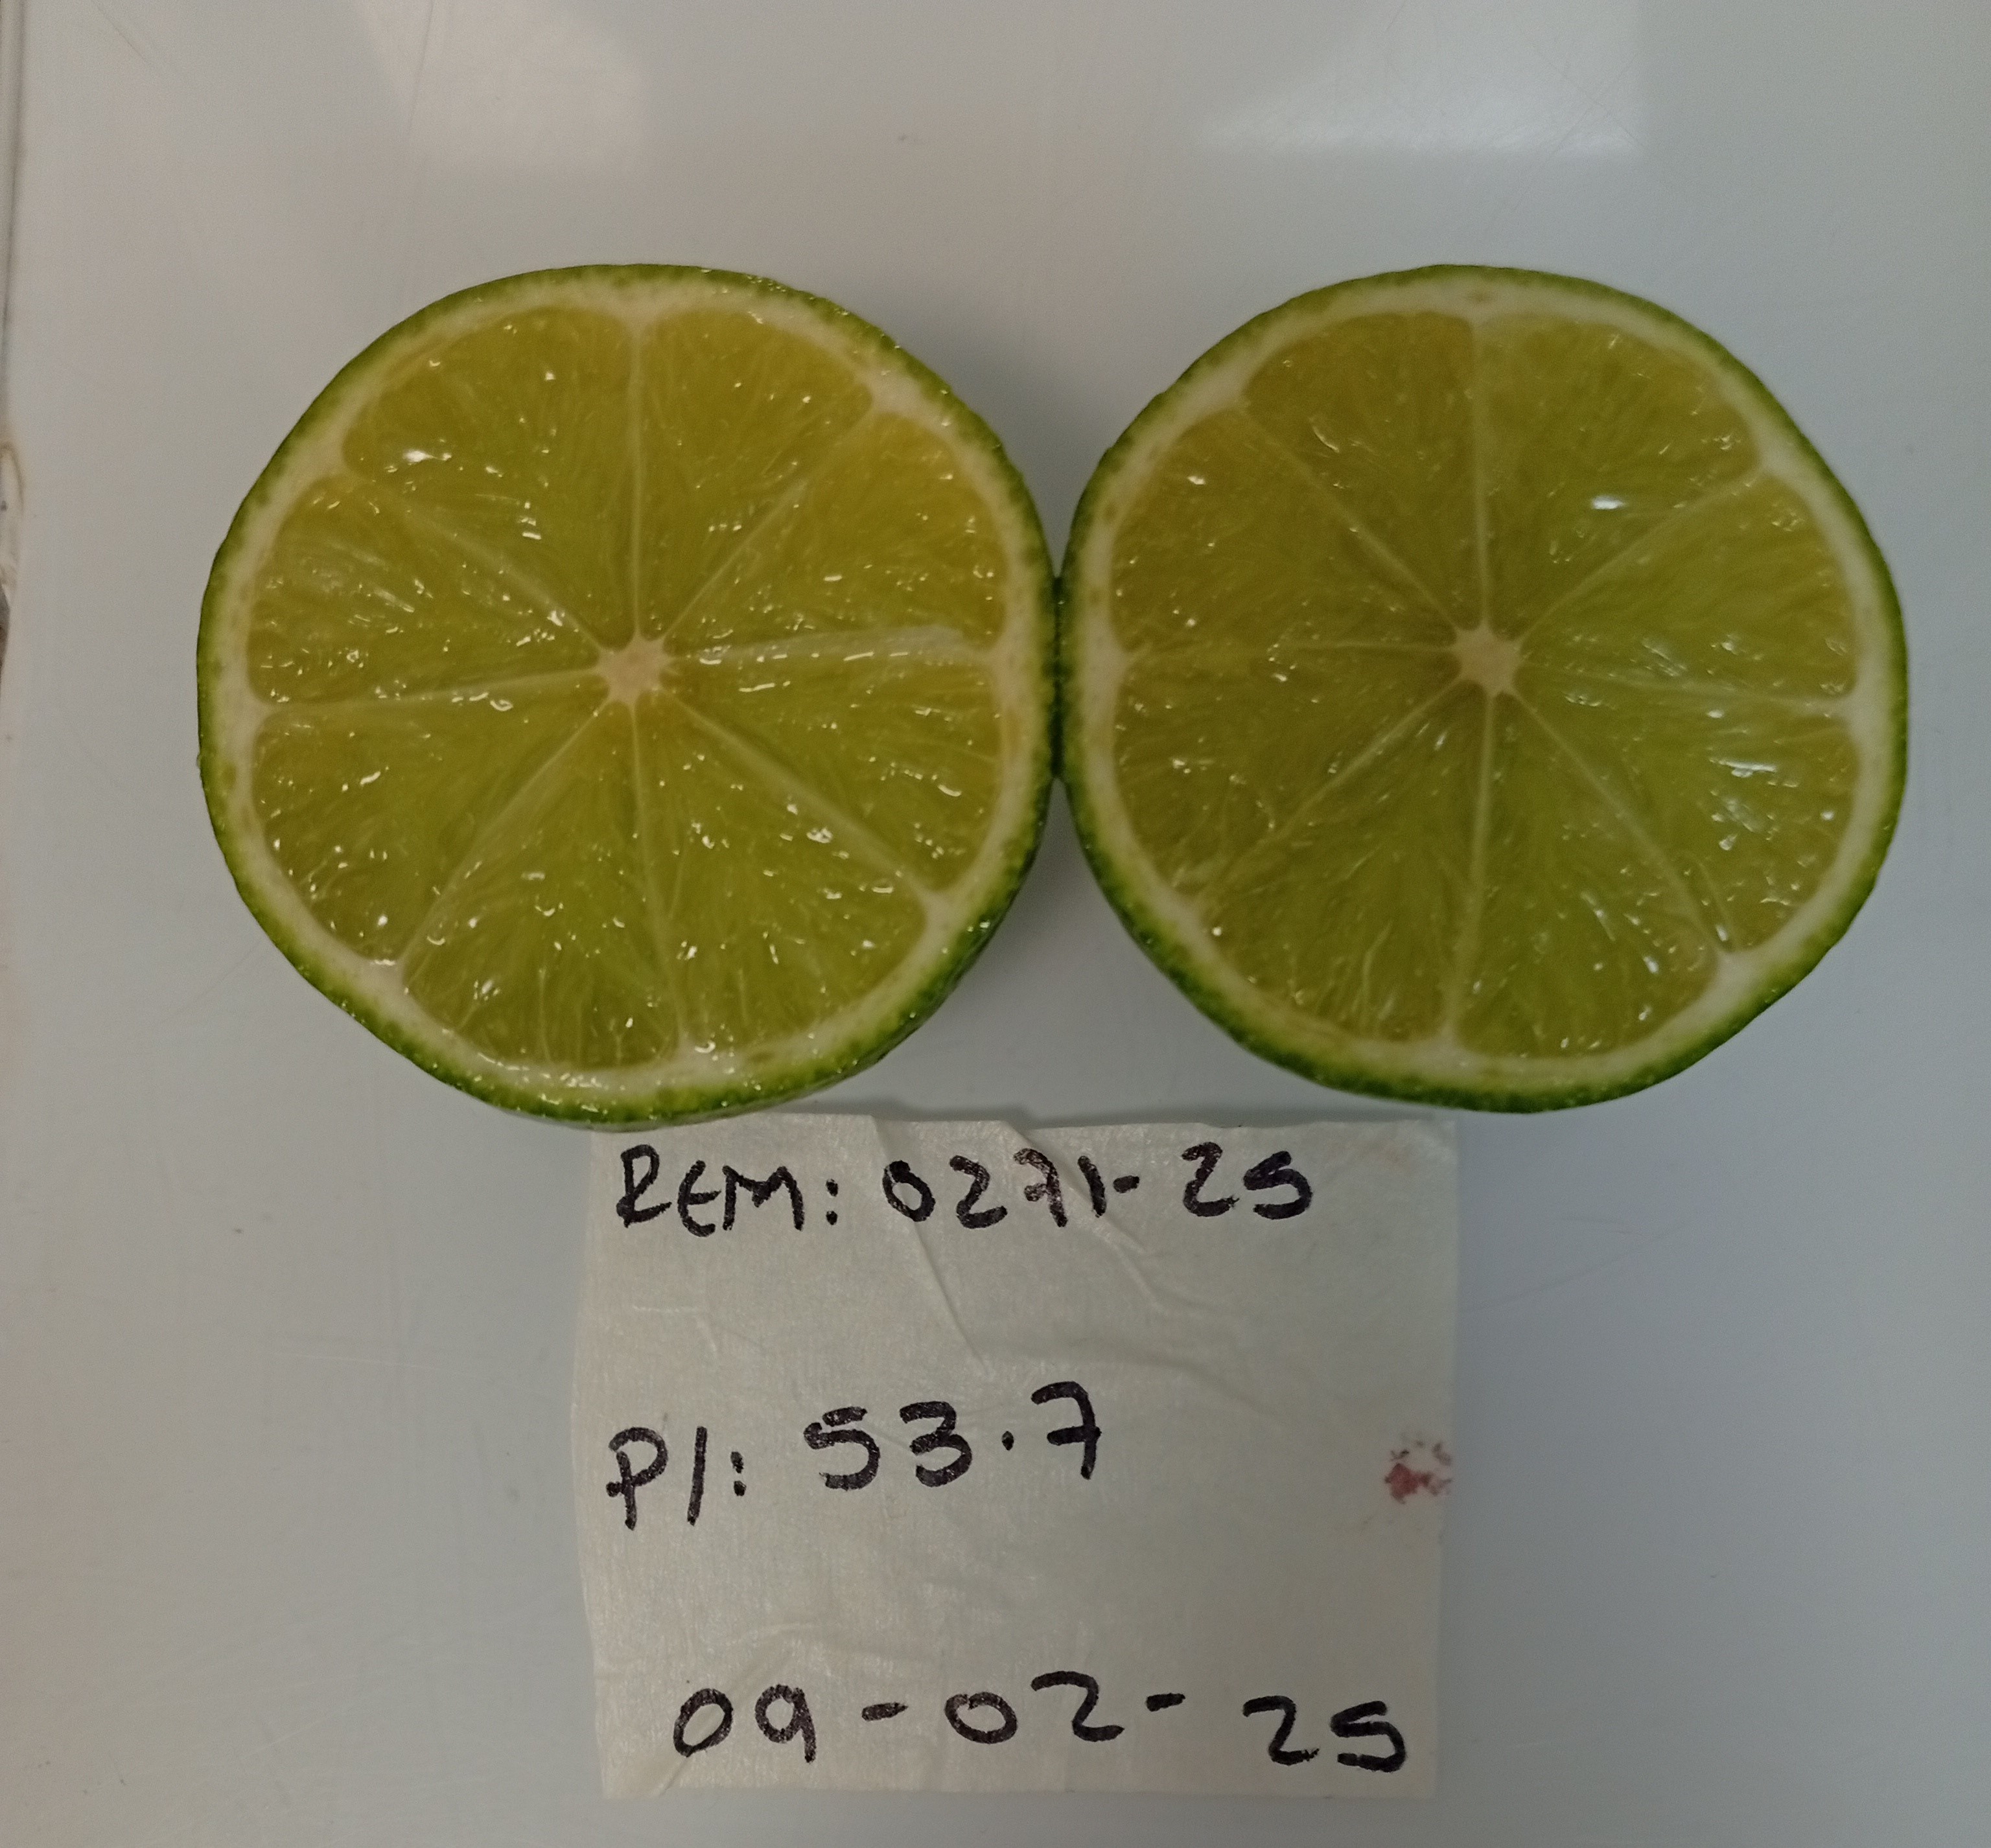 REM: 0271-25
P/: 53.7
09-02-25